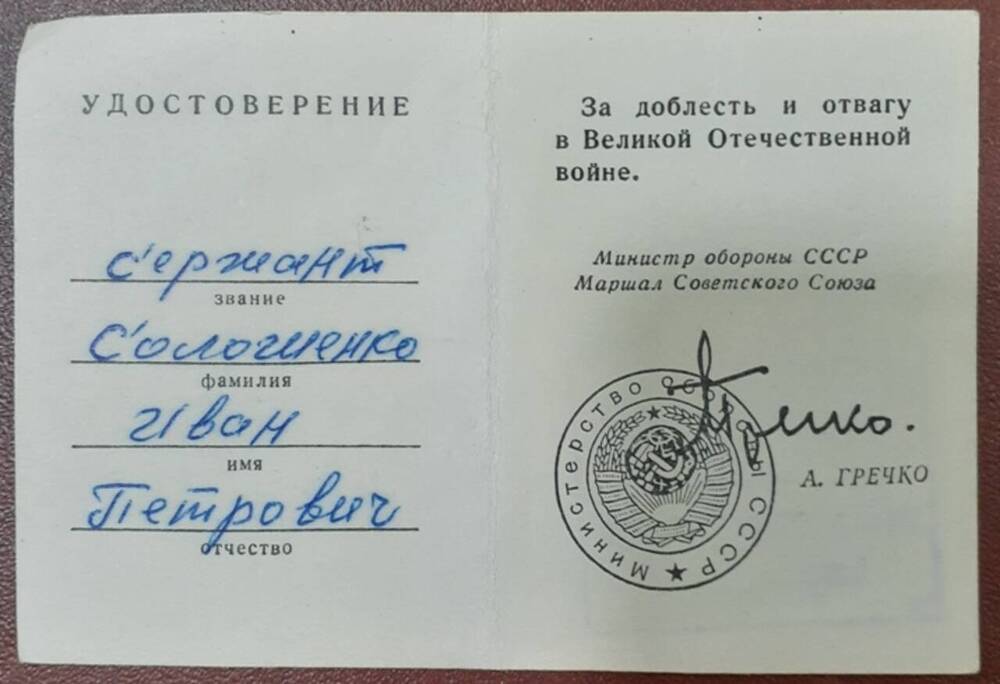 УДОСТОВЕРЕНИЕ
сержант
звание
Солошенко
фамилия
Иван
имя
Петрович
отчество
За доблесть и отвагу
в Великой Отечественной
войне.
Министр обороны СССР
Маршал Советского Союза
Министерство обороны СССР
А. ГРЕЧКО